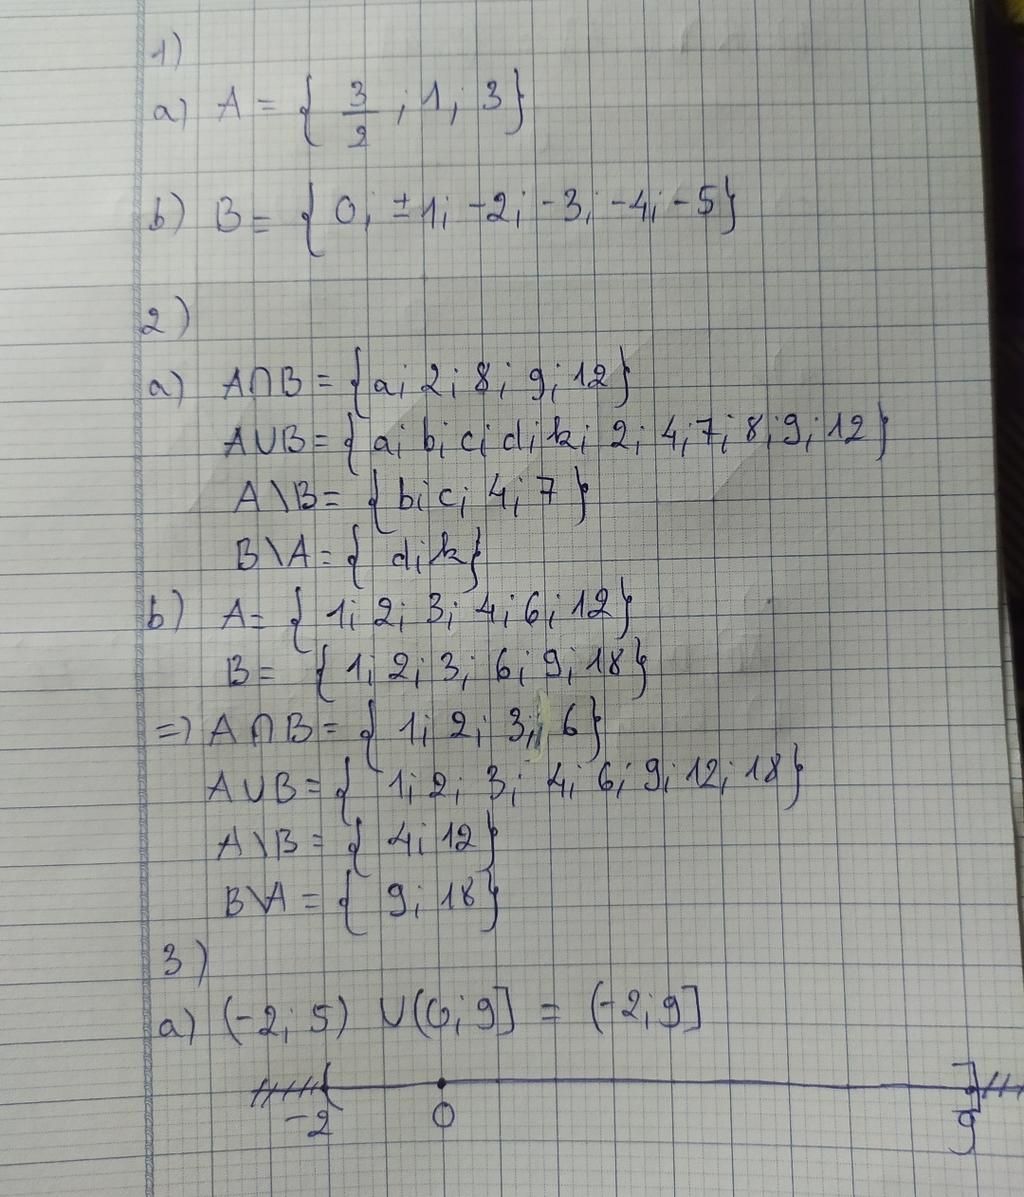 1)
a) A = { 3/2 ; 1 ; 3 }
b) B = { 0 ; ±1 ; -2 ; -3 ; -4 ; -5 }
2)
a) A∩B = { a ; 2 ; 8 ; 9 ; 12 }
A∪B = { a ; b ; c ; d ; k ; 2 ; 4 ; 7 ; 8 ; 9 ; 12 }
A\B = { b ; c ; 4 ; 7 }
B\A = { d ; k }
b) A = { 1 ; 2 ; 3 ; 4 ; 6 ; 12 }
B = { 1 ; 2 ; 3 ; 6 ; 9 ; 18 }
=> A∩B = { 1 ; 2 ; 3 ; 6 }
A∪B = { 1 ; 2 ; 3 ; 4 ; 6 ; 9 ; 12 ; 18 }
A\B = { 4 ; 12 }
B\A = { 9 ; 18 }
3)
a) (-2 ; 5) ∪ (0 ; 9] = (-2 ; 9]
( ]
-2 0 9